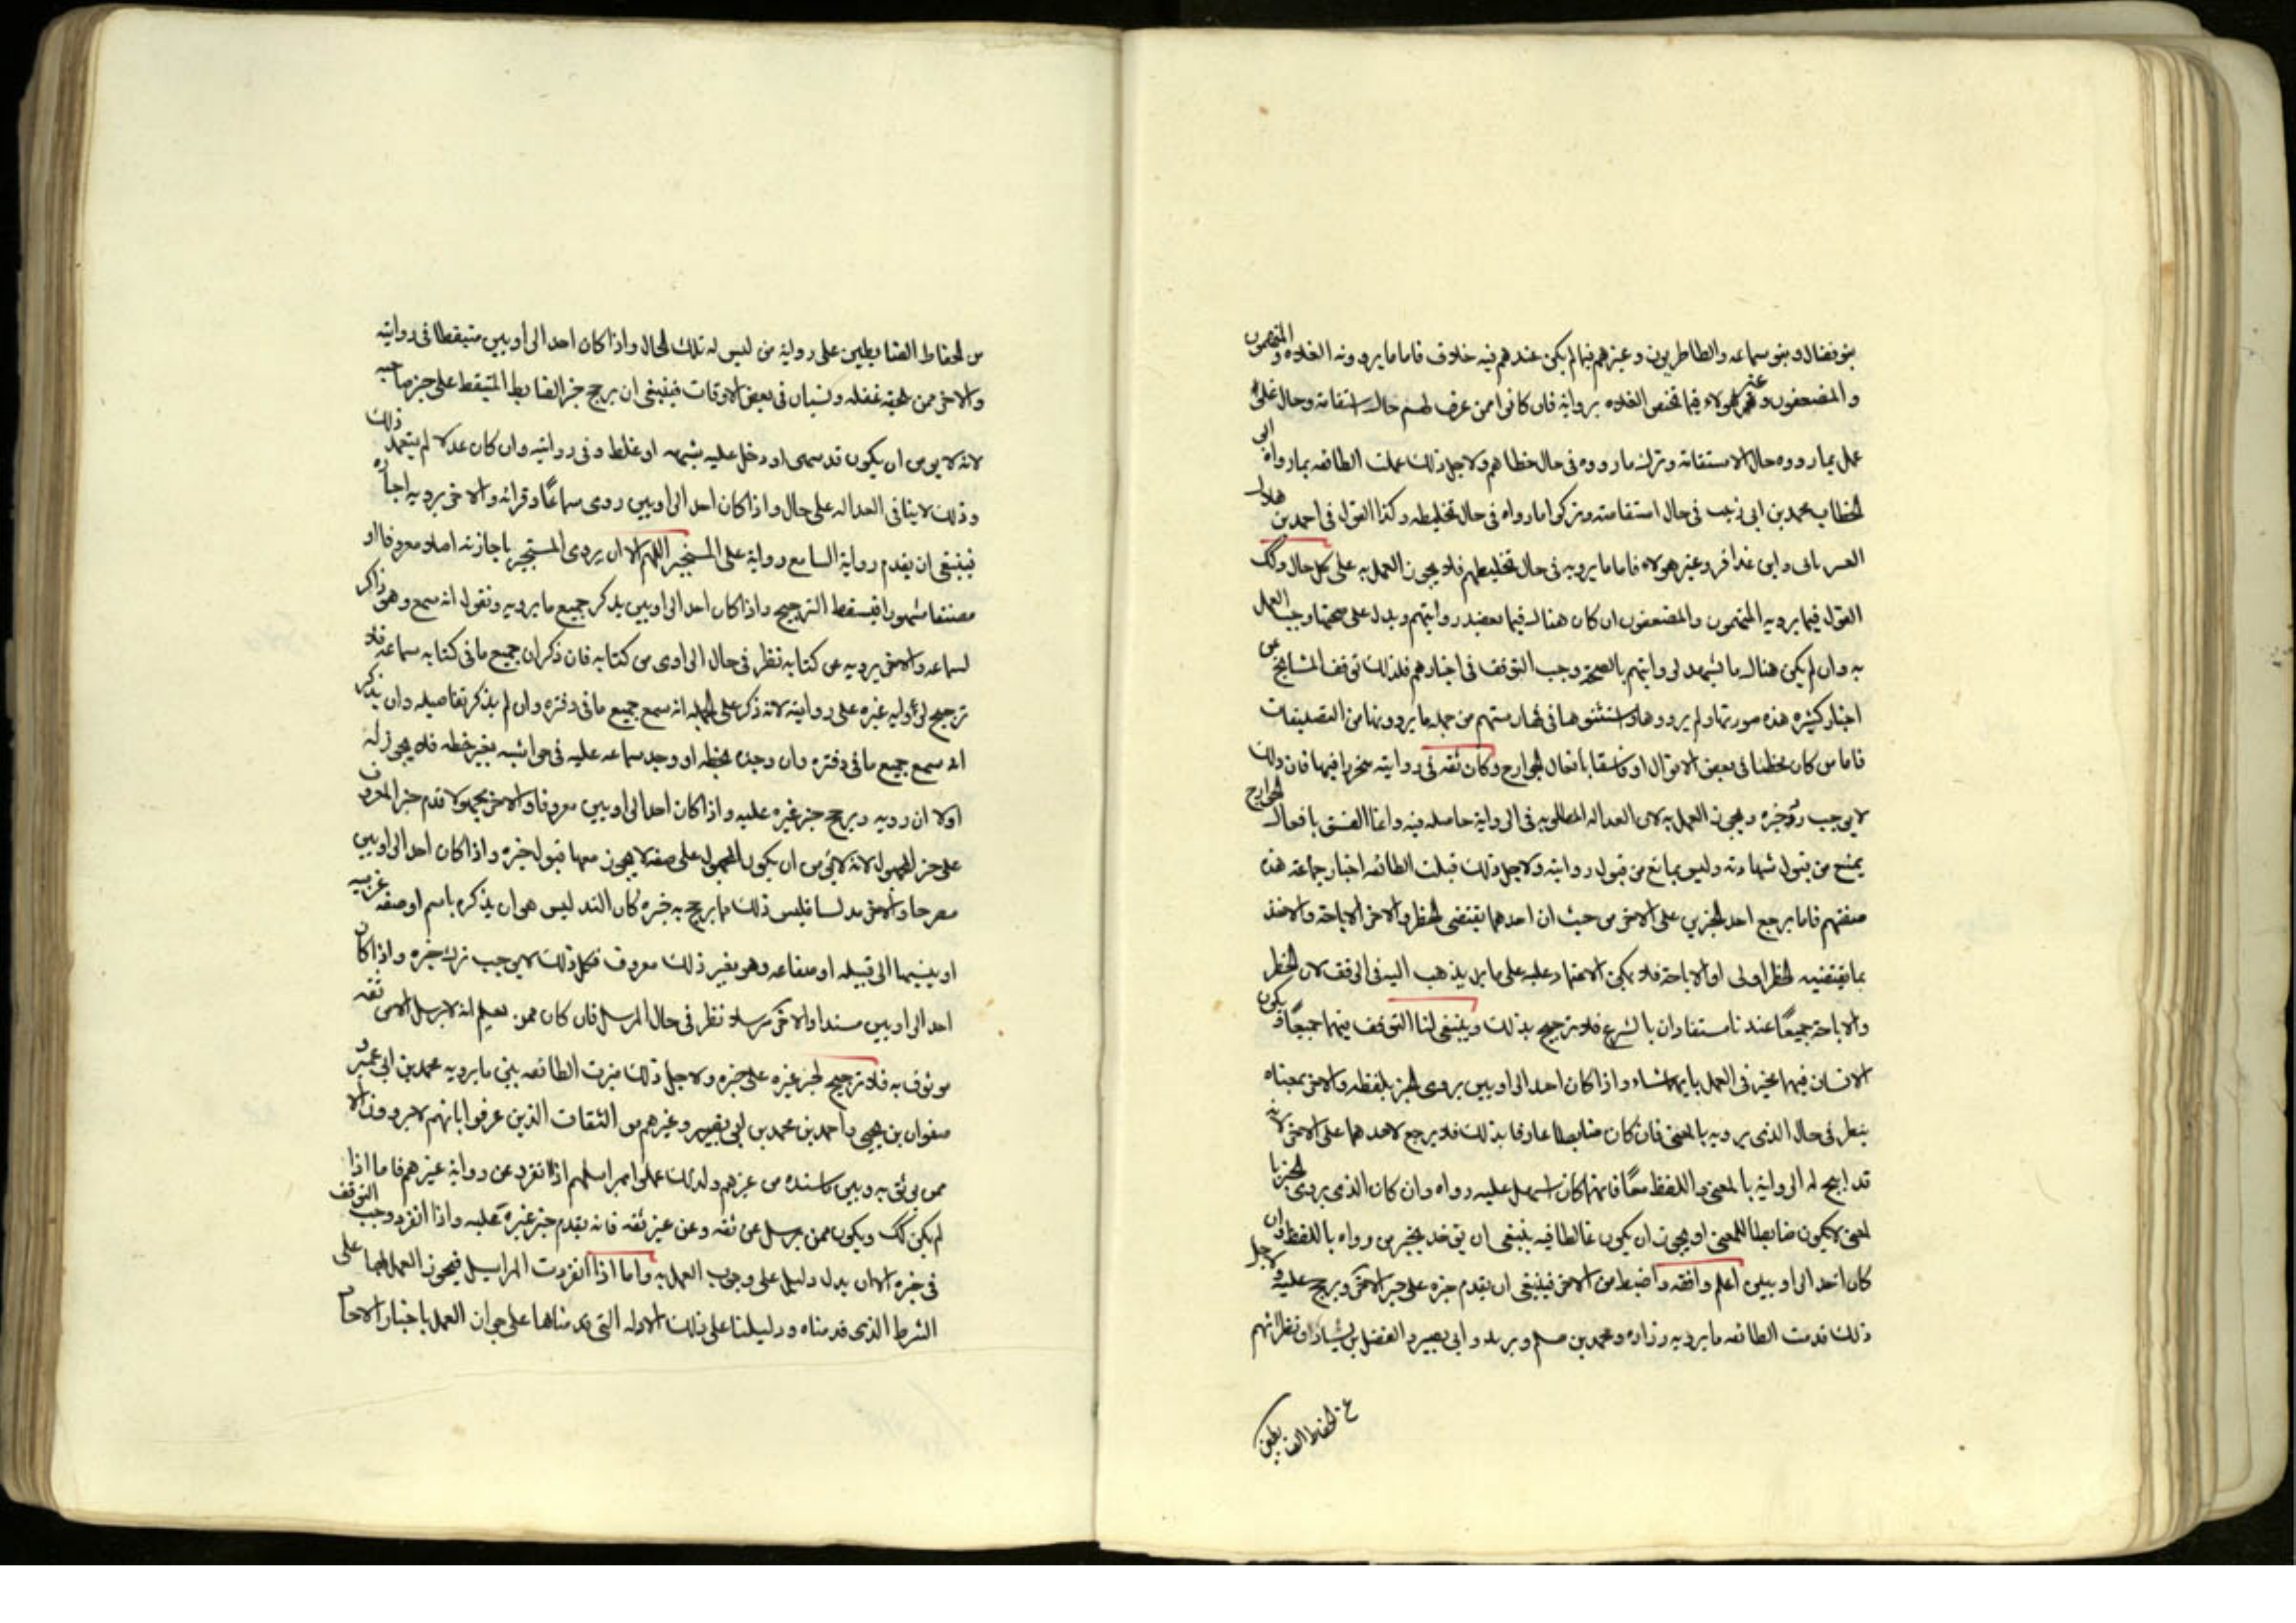 بنو فضال و بنو سماعه والطاطريون وغيرهم فيما لم يكن عندهم فيه خلاف فاما ما يرويه الغلاة والمتهمون
والمضعفون وغير هولاء فيما يختص الغلاه بروايه فان كانوا ممن عرف لهم حال استقامة وحال غلو
عمل بما رووه حال الاستقامة وترك ما رووه في حال خطاهم ولاجل ذلك عملت الطائفه بما رواه ابي
الخطاب محمد بن ابي زينب في حال استقامته وتركوا ما رواه في حال تخليطه وكذا القول في احمد بن هلال
العبرتائي وابن عذافر وغير هولاء فاما ما يرويه في حال تخليطهم فلا يجوز العمل به على كل حال وكك
القول فيما يرويه المتهمون والمضعفون ان كان هناك فيما يعضد روايتهم ويدل على صحتها وجب العمل
به وان لم يكن هناك ما يشهد لروايتهم بالصحة وجب التوقف في اخبارهم فلذلك توقف المشايخ عن
اخبار كثيره هذه صورتها ولم يرووها واستثنوها في فهارستهم من جمله ما يروونها من التصنيفات
فاما من كان مخطئا في بعض الافعال او فاسقا بافعال الجوارح وكان ثقه في روايته متحرزا فيها فان ذلك
لا يوجب رد خبره ويجوز العمل به لان العداله المطلوبه في الرواية حاصله فيه وانما الفسق بافعال الجوارح
يمنع من قبول شهادته وليس بمانع من قبول روايته ولاجل ذلك قبلت الطائفه اخبار جماعة هذه
صفتهم فاما يرجح احد الخبرين على الاخر من حيث ان احدهما يقتضي الحظر والاخر الاباحة والاخذ
بما يقتضيه الحظر اولى او الاباحة فلا يمكن الاعتماد عليه على ما بل يذهب اليه في الوقف لان الحظر
والاباحة جميعًا عندنا مستفادان بالشرع فلا ترجيح بذلك وينبغي لنا التوقف فيهما جميعًا ويكون
الانسان فيهما مخير في العمل بايهما شاء واذا كان احد الراويين يروي الخبر بلفظه والاخر بمعناه
ينظر في حال الذي يرويه بالمعنى فان كان ضابطا عارفا بذلك فلا يرجح لاحدهما على الاخر لانه
قد ابيح له الرواية بالمعنى واللفظ معًا فايهما كان اسهل عليه رواه وان كان الذي يروي الخبر با
لمعنى لا يكون ضابطا للمعنى او يجوز ان يكون غالطا فيه ينبغي ان يوخذ بخبر من رواه باللفظ وان
كان احد الراويين اعلم وافقه واضبط من الاخر فينبغي ان يقدم خبره على خبر الاخر ويرجح عليه ولاجل
ذلك قدمت الطائفه ما يرويه زراره ومحمد بن مسلم وبريد وابي بصير والفضل بن يسار ونظرائهم
من الحفاظ الضابطين
من الحفاظ الضابطين على رواية من ليس له تلك الحال واذا كان احد الراويين متيقظا في روايته
والاخر ممن يلحقه غفله ونسيان في بعض الاوقات فينبغي ان يرجح خبر الضابط المتيقظ على خبر صاحبه
لانه لا يومن ان يكون قد سهى او دخل عليه شبهه او غلط في روايته وان كان عدلا لم يتعمد ذلك
وذلك لا ينافي العداله على حال واذا كان احد الراويين روى سماعًا وقرائة والاخر يرويه اجازه
فينبغي ان يقدم رواية السامع رواية على المستجيز اللهم الا ان يروي المستجيز باجازته اصلا معروفا او
مصنفا مشهورا فيسقط الترجيح واذا كان احد الراويين يذكر جميع ما يرويه ونقول انه سمعه وهو ذاكر
لسماعه والاخر يرويه من كتابه نظر في حال الراوي من كتابه فان ذكر ان جميع ما في كتابه سماعه فلا
ترجيح لرواية غيره على روايته لانه ذكر على الجمله انه سمع جميع ما في دفتره وان لم يذكر تفاصيله وان يذكر
انه سمع جميع ما في دفتره وان وجده بخطه او وجد سماعه عليه في حواشيه بغير خطه فلا يجوز له
اولا ان رويه ويرجح خبر غيره عليه واذا كان احد الراويين معروفا والاخر مجهولا قدم خبر المعروف
على خبر المجهول لانه لا يومن ان يكون المجهول على صفه لا يجوز معها قبول خبره واذا كان احد الراويين
مصرحا والاخر مدلسا فليس ذلك مما يرجح به خبره كان التدليس هو ان يذكره باسم او صفه غريبه
او ينسبها الى قبيله او صناعه وهو بغير ذلك معروف فكل ذلك لا يوجب ترك خبره واذا كان
احد الراويين مسندا والاخر مرسلا نظر في حال المرسل فان كان ممن يعلم انه لا يرسل الا من ثقه
موثوق به فلا ترجيح لخبر غيره على خبره ولاجل ذلك ميزت الطائفه بين ما يرويه محمد بن ابي عمير و
صفوان بن يحيى واحمد بن محمد بن ابي نصير وغيرهم من الثقات الذين عرفوا بانهم لا يروون الا
ممن يوثق به وبين ما اسنده من غيرهم ولذلك عملوا بمراسلهم اذا انفرد عن رواية غيرهم فاما اذا
لم يكن كك ويكون ممن يرسل عن ثقه وعن غير ثقه فانه يقدم خبر غيره عليه واذا انفرد وجب التوقف
في خبره الا ان يدل دليل على وجوب العمل به واما اذا انفردت المراسيل فيجوز العمل بها على
الشرط الذي قدمناه ودليلنا على ذلك الادله التي قدمناها على جواز العمل باخبار الاحاد